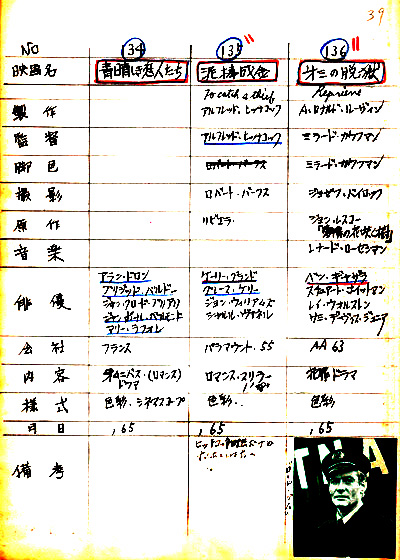 39
NO 134 135 136
映画名 青晴れ恋人たち 泥棒成金 第二の脱獄
To catch a thief Reprieve
製作 アルフレッド・ヒッチコック A・ロナルド・ルーヴィン
監督 アルフレッド・ヒッチコック ミラード・カウフマン
脚色 ミラード・カウフマン
撮影 ロバート・バークス ジョセフ・バイロック
原作 リビエラ ジョン・レスコー
音楽 レナード・ローゼンマン
俳優 アラン・ドロン ケーリー・グランド ベン・ギャザラ
ブリジッド・バルドー グレース・ケリー スチュアート・ホイットマン
ジャン・クロード・ブリアリ ジョン・ウィリアムズ レイ・ウォルストン
ジャン・ポール・ベルモンド シャルル・ヴァネル サミー・デーヴィス・ジュニア
マリー・ラフォレ
会社 フランス パラマウント・55 AA 63
内容 オムニバス・(ロマンス) ロマンス・スリラー ドラマ
ドラマ
様式 色彩・シネマスコープ 色彩・ 色彩
月日 ,65 ,65 ,65
備考